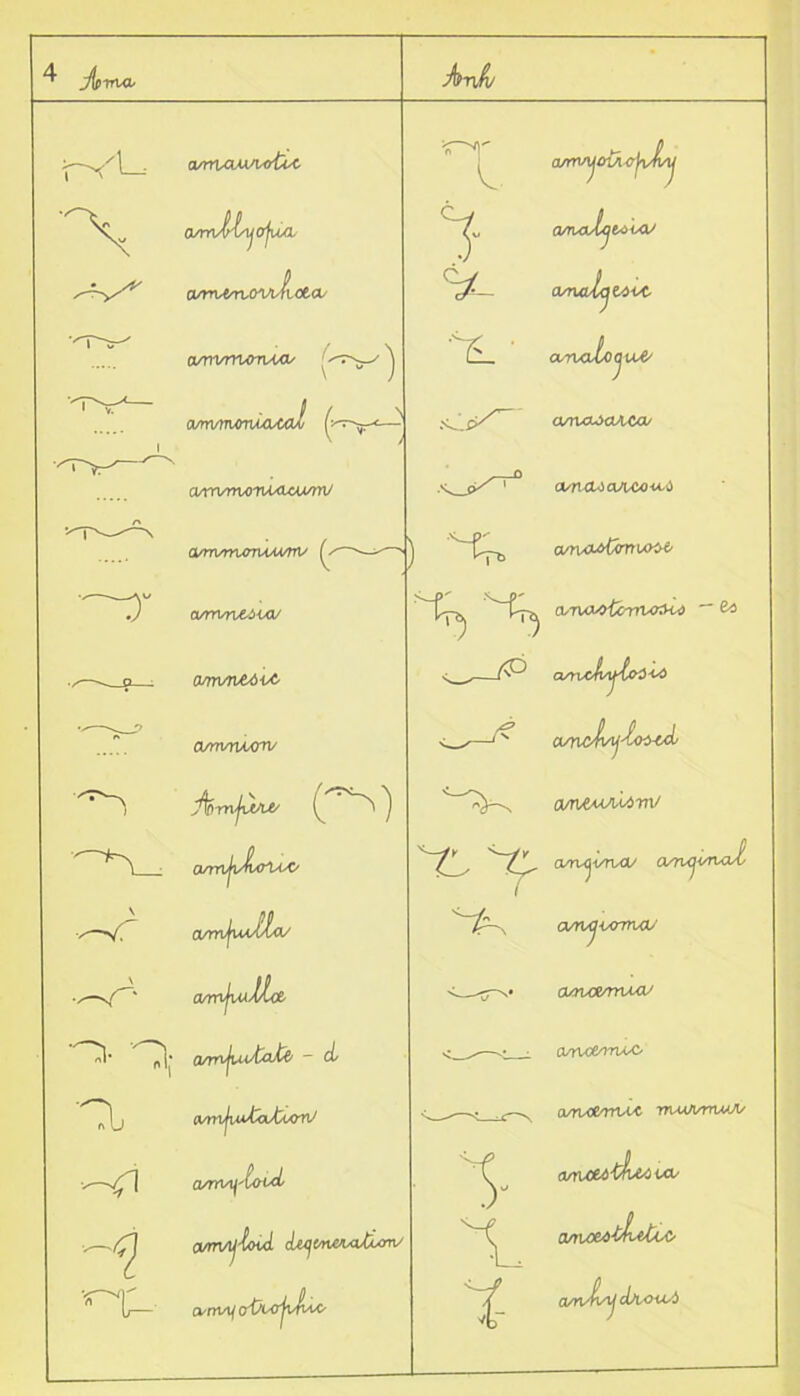 4 Ama
amaurotic
amblyopia
amenorrhœa
ammonia ( )
ammoniacal ( )
ammoniacum
ammonium ( )
amnesia
amnesic
amnion
Ampère ( )
amphoric
ampulla
ampullæ
amputate - d
amputation
amyloid
amyloid degeneration
amyotrophic
Anh
amyotrophy
analgesia
analgesic
analogue
anasarca
anasarcous
anastomose
anastomosis - es
anchylosis
anchylosed
aneurism
angina anginal
angioma
anæmia
anæmic
anæmic murmur
anæsthesia
anæsthetic
anhydrous